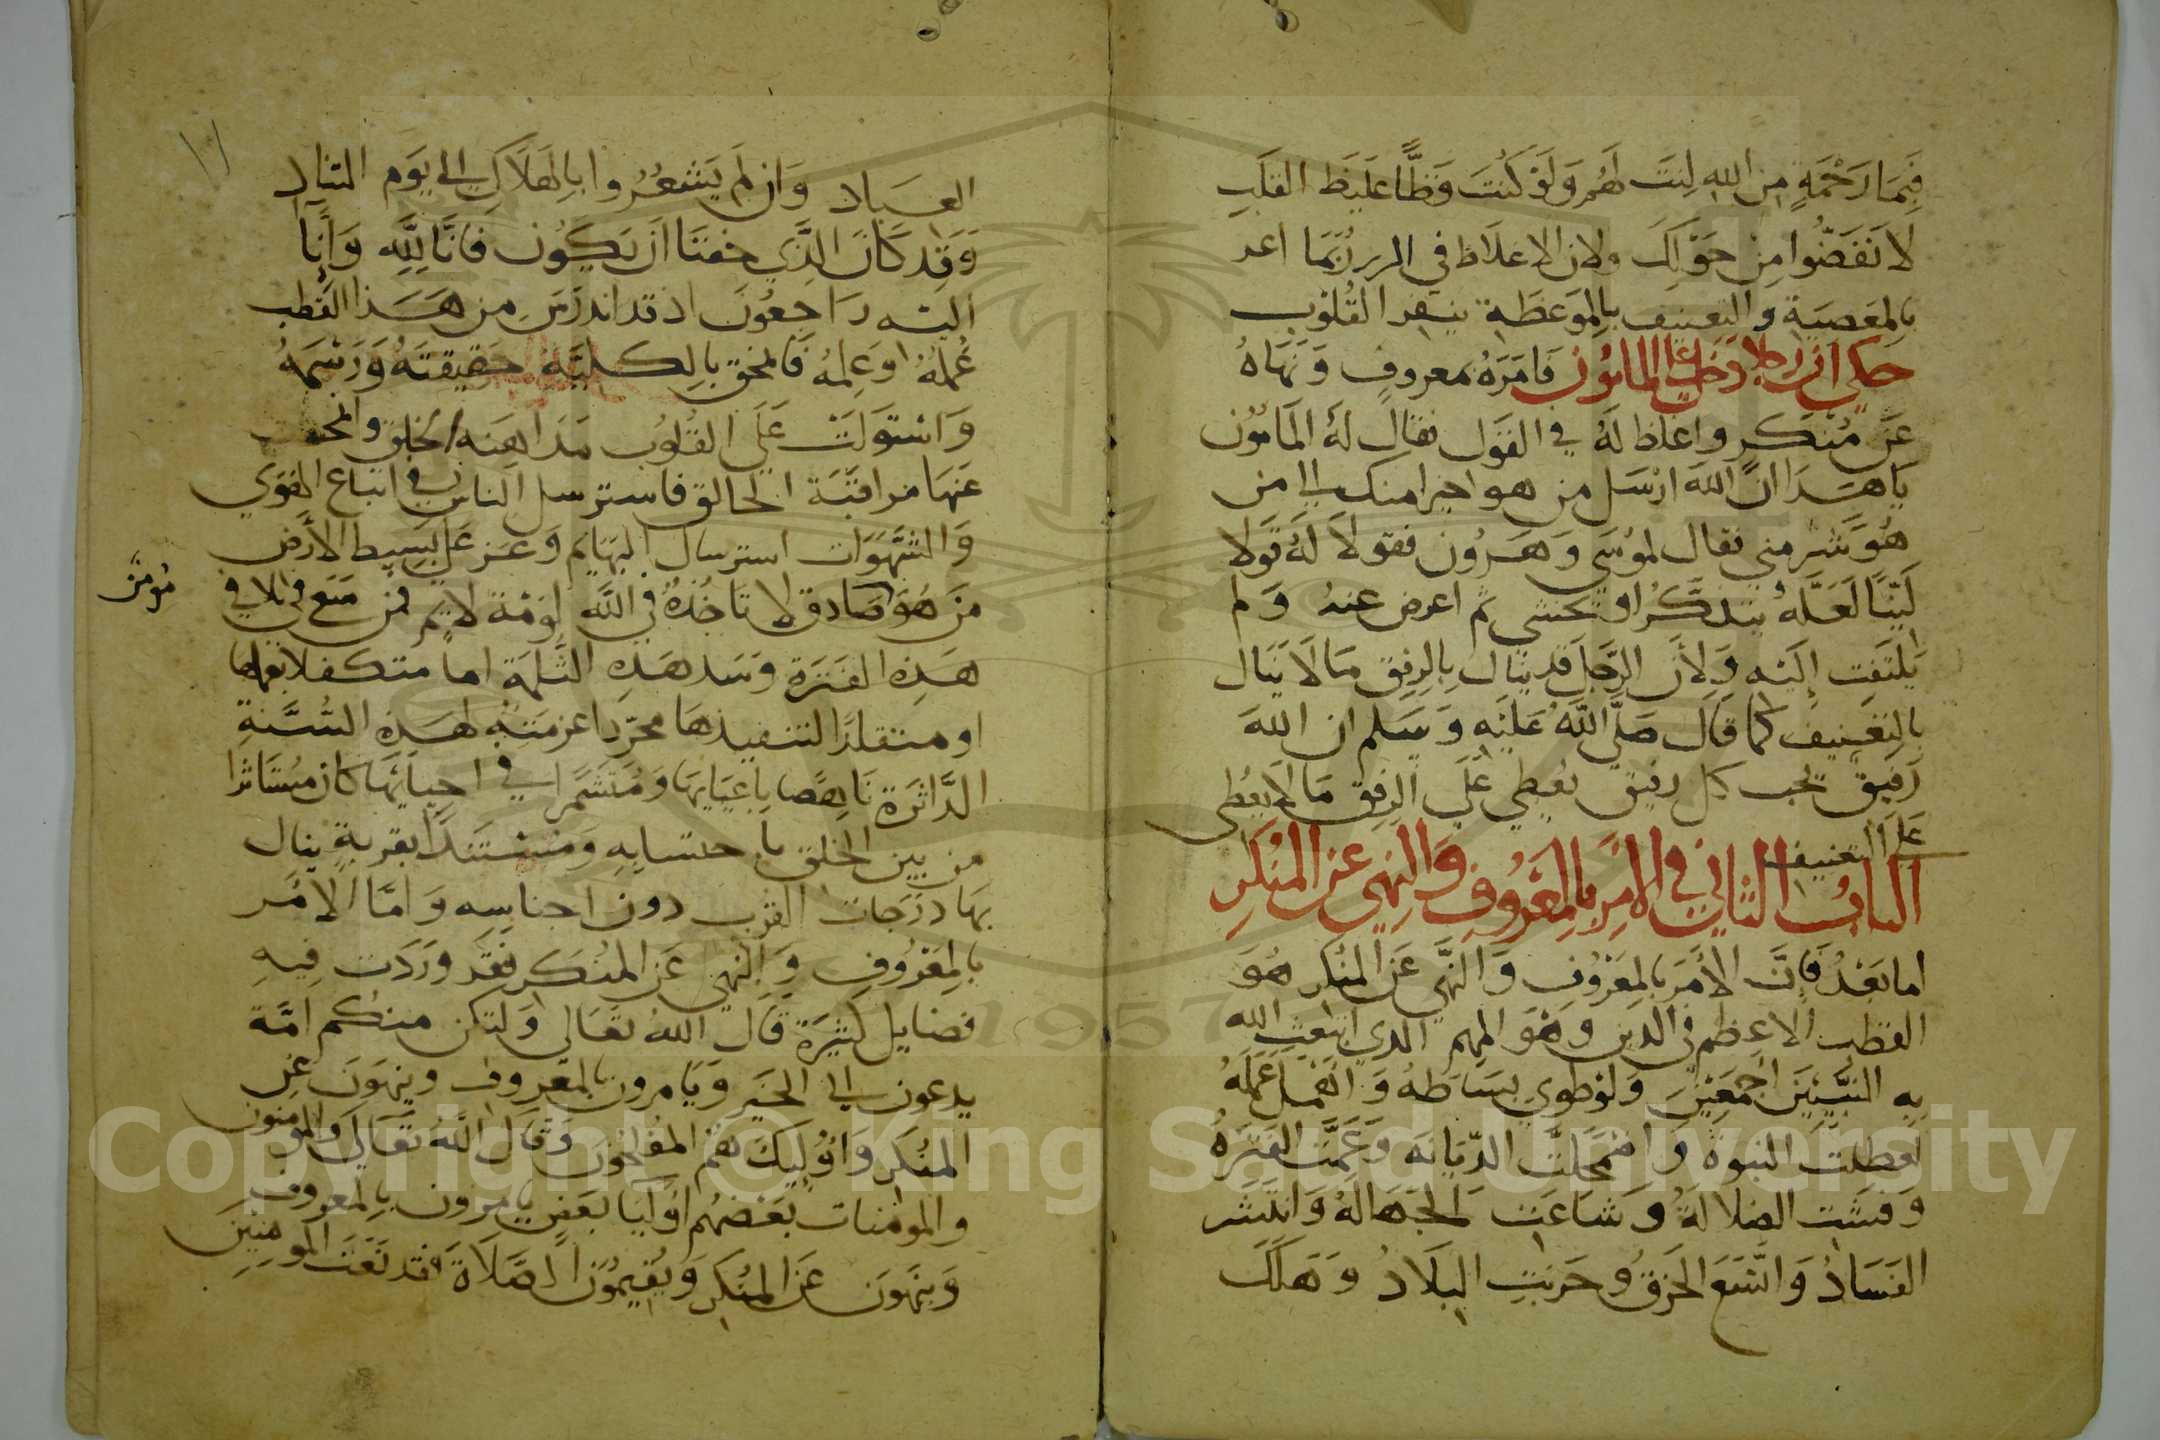 فَبِمَا رَحْمَةٍ مِنَ اللهِ لِنتَ لَهُم وَلَوْ كُنْتَ فَظًّا غَلِيظَ القَلبِ
لا نفَضُّوا مِنْ حَوْلِكَ ولان الاغلاظ في رُبَّمَا
بِالمعَصيَة والتعنيف بِالمَوعَظَةِ ينفر القُلُوبَ
حكى ان رجلا دخل على المامون فَامَرَهُ بمعروفٍ وَنَهَاهُ
عَن مُنكَرٍ واغلظ لَهُ في القَول فقال لَهُ المَامُون
يَا هَذَا انَّ اللهَ ارْسَل من هو اخير منك الى من
هُوَ شر مني فقال لموُسَى وَهَرُون فقولاَ لَهُ قَولا
لَيّنًا لَعَلَّهُ يتذكَّرُ او يخشى ثم اعرض عنهُ وَلم
يلتَفت إلَيْه وَلِأَن الرَّجل قد ينال بِالرِفق مَا لاَ يَنَال
بِالتعنيف كما قال صَلَّى اللَّهُ عَلَيْهِ وَسَلم ان اللهَ
رَفيق يحب كل رفيق يعطي عَلَى الرفق مَا لا يعُطي
عَلَى التعنيف
الباب الثاني في الأمر بِالمعَرُوف وَالنهي عن المُنكَرِ
اما بَعْدُ فَإِنَّ الأَمرَ بالمعَرُوف وَالنَّهي عَن المُنكر هُوَ
القطب الاعظم في الدين وَهُوَ المهم الذي ابتعث الله
به النبِيّينَ أجمعَيْنَ وَلوْ طوي بسَاطهُ وَاهْمل عَمَلهُ
لعَطلت النبوة وَاضمحَلت الدّيَانَه وَعَمَّت الفَترَةُ
وَفشت الضلالةُ وَشاعَت الجَهَالَةُ وَانتَشر
الفَسَادُ وَاتَّسَعَ الخَرقُ وخرَبَتِ البَلاَدُ وَهَلَكَ
١١
العباد وَان لَم يَشعُرُوا بالهَلاَكِ إلى يَوَم التنادِ
وَقد كَانَ الذَّي خفنَا ان يَكُون فانَّا لِلَّهِ وَإنَّا
إليْه رَاجِعُونَ اذ قد اندرَسَ من هَذا القُطب
عَمَلهُ وَعِلمُهُ فَانمحَق بِالكليَّة حَقيقتَهُ وَرَسْمَهُ
وَاسْتَولَت عَلَى القلوُب مدَاهَنة الخلق وانمحت
عَنهَا مراقبَة الخالق فاسترسل الناس في اتباع الهَوَى
وَالشهَوَات استرسال البهَايم وَعَز على بَسِيط الأَرْض
مَن هُوَ صَادق لا تَاخُذهُ في اللَّهِ لَوْمَة لايم فمن سَعَى في تلافي
مؤمن
هَذِه الفَترَة وسَد هَذِه الثَّلمَة اما متكفلا بعَملهَا
او متقلدًا لتنفيذهَا مجرّدا عزمَتهِ لهَذه السُّنَّةِ
الدَّاثرَة نَاهضًا بِاعبَايهَا وَمُتَشَمرًا في احيَايهَا كان مستَاثرا
من بين الخلق باحتسابِهِ وَمُستَندًا بقربةٍ ينال
بهَا دَرَجَات القرب دون اجناسه وَامَّا الأمْر
بالمعَرُوف وَالنهي عَن المُنكَر فقد وَرَدَت فِيهِ
فضايل كَثِيَرة قال اللهُ تعَالى وَلتكن منكم امَّة
يدعون إلى الخَير وَيَامرون بالمعَروف وينهَونَ عَن
المنُكَر وَأولئِكَ هُمُ المُفلحُونَ وَقالَ اللَّهُ تعَالَى وَالمؤمنون
والمؤمنات بَعَضهُم أوْلَيَا بعَض يَامرون بِالمعرَوف
وَينهَون عَن المنُكر وَيُقيمُونَ الصَّلاَةَ فقد نَعَتَ المؤمنِينَ